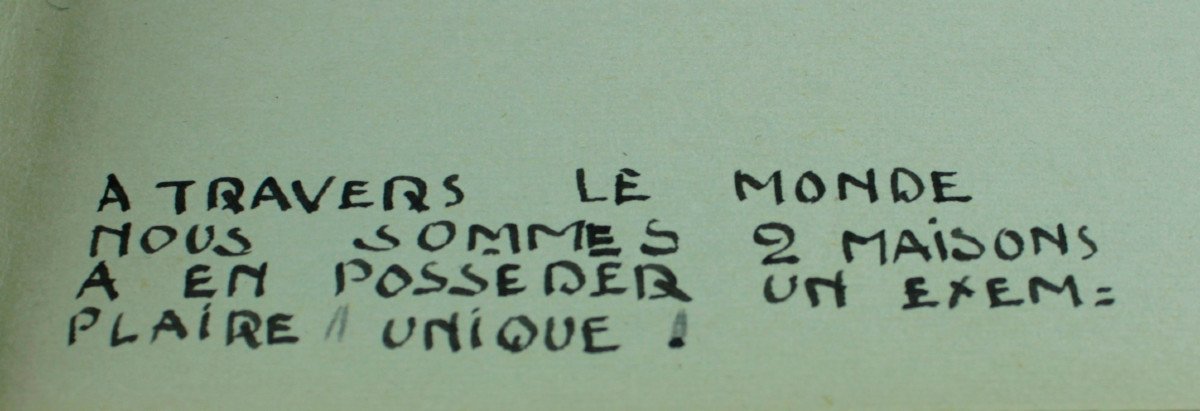 A TRAVERS LE MONDE
NOUS SOMMES 2 MAiSONS
A EN POSSEDER UN EXEM=
PLAiRE " UNiQUE !